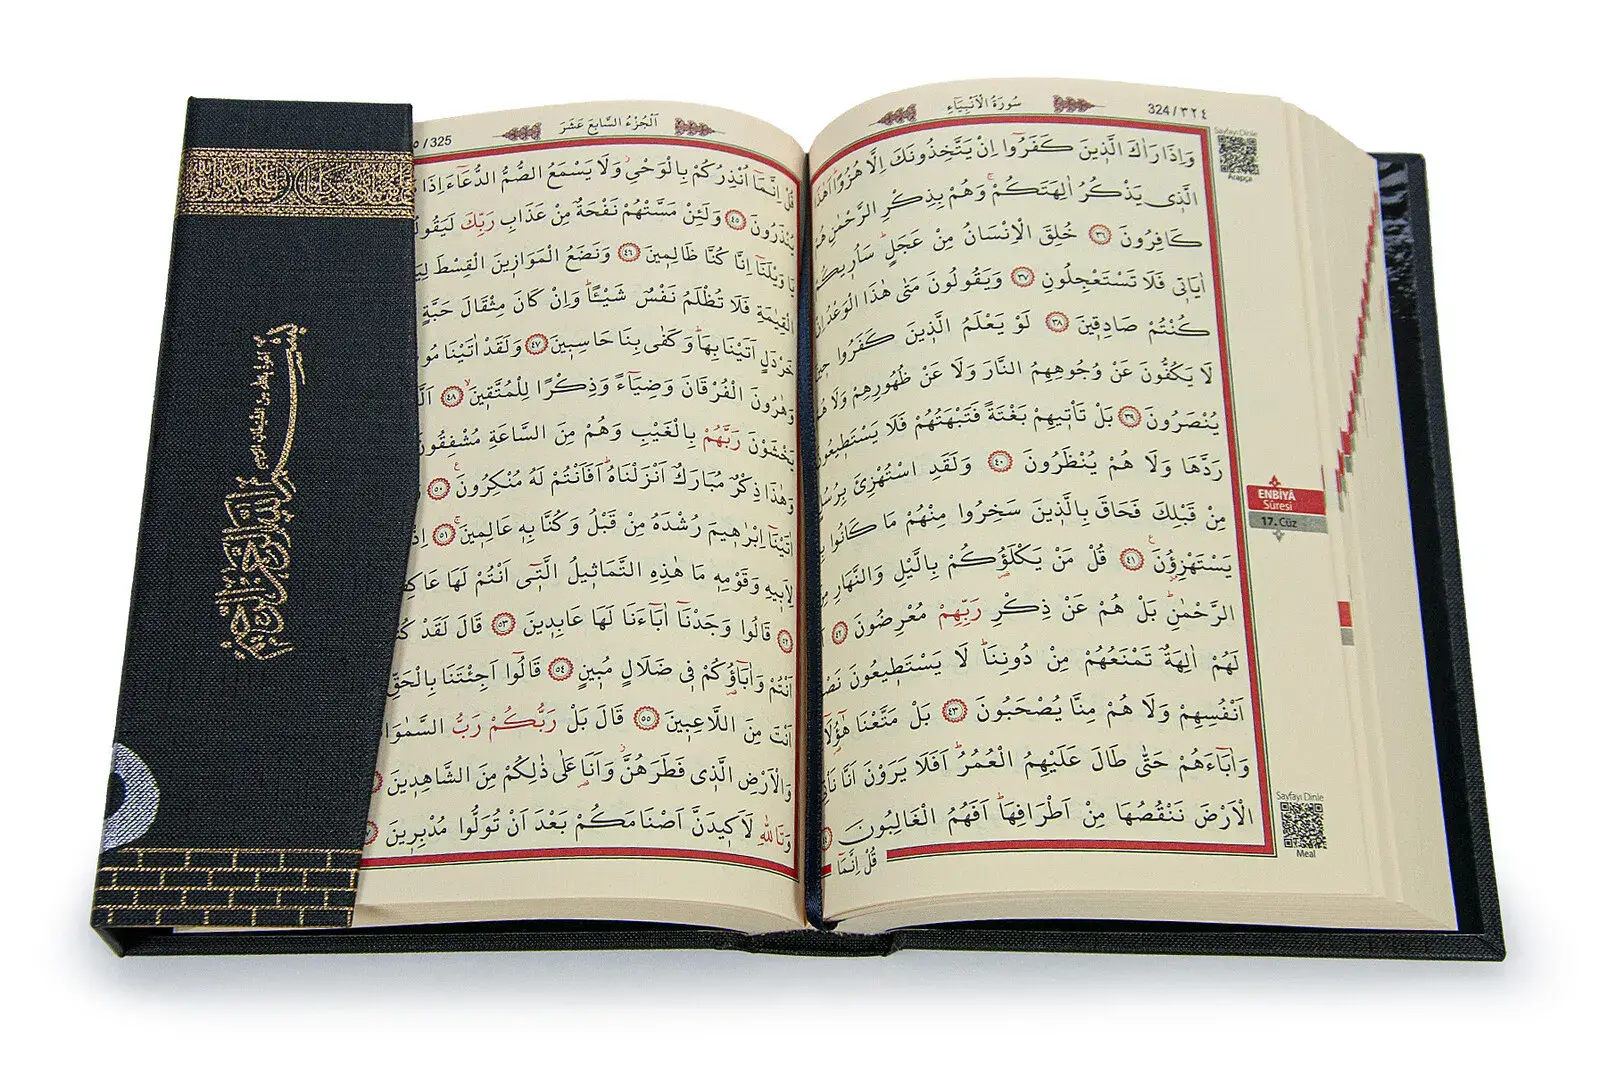 324 / ٣٢٤
سُورَةُ الْاَنْبِيَاءِ
وَاِذَا رَاٰكَ الَّذ۪ينَ كَفَرُٓوا اِنْ يَتَّخِذُونَكَ اِلَّا هُزُوًاۜ اَهٰذَا
الَّذ۪ي يَذْكُرُ اٰلِهَتَكُمْۚ وَهُمْ بِذِكْرِ الرَّحْمٰنِ هُمْ
كَافِرُونَ ﴿٣٦﴾ خُلِقَ الْاِنْسَانُ مِنْ عَجَلٍۜ سَاُر۪يكُمْ
اٰيَات۪ي فَلَا تَسْتَعْجِلُونِ ﴿٣٧﴾ وَيَقُولُونَ مَتٰى هٰذَا الْوَعْدُ اِنْ
كُنْتُمْ صَادِق۪ينَ ﴿٣٨﴾ لَوْ يَعْلَمُ الَّذ۪ينَ كَفَرُوا ح۪ينَ
لَا يَكُفُّونَ عَنْ وُجُوهِهِمُ النَّارَ وَلَا عَنْ ظُهُورِهِمْ وَلَا هُمْ
يُنْصَرُونَ ﴿٣٩﴾ بَلْ تَأْت۪يهِمْ بَغْتَةً فَتَبْهَتُهُمْ فَلَا يَسْتَط۪يعُونَ
رَدَّهَا وَلَا هُمْ يُنْظَرُونَ ﴿٤٠﴾ وَلَقَدِ اسْتُهْزِئَ بِرُسُلٍ
مِنْ قَبْلِكَ فَحَاقَ بِالَّذ۪ينَ سَخِرُوا مِنْهُمْ مَا كَانُوا بِه۪
يَسْتَهْزِؤُ۫نَ۟ ﴿٤١﴾ قُلْ مَنْ يَكْلَؤُ۬كُمْ بِالَّيْلِ وَالنَّهَارِ مِنَ
الرَّحْمٰنِۜ بَلْ هُمْ عَنْ ذِكْرِ رَبِّهِمْ مُعْرِضُونَ ﴿٤٢﴾ اَمْ
لَهُمْ اٰلِهَةٌ تَمْنَعُهُمْ مِنْ دُونِنَاۜ لَا يَسْتَط۪يعُونَ نَصْرَ
اَنْفُسِهِمْ وَلَا هُمْ مِنَّا يُصْحَبُونَ ﴿٤٣﴾ بَلْ مَتَّعْنَا هٰٓؤُ۬لَٓاءِ
وَاٰبَٓاءَهُمْ حَتّٰى طَالَ عَلَيْهِمُ الْعُمُرُۜ اَفَلَا يَرَوْنَ اَنَّا نَأْتِي
الْاَرْضَ نَنْقُصُهَا مِنْ اَطْرَافِهَاۜ اَفَهُمُ الْغَالِبُونَ ﴿٤٤﴾
قُلْ اِنَّمَٓا
Sayfayı Dinle
Arapça
ENBİYÂ
Sûresi
17. Cüz
Sayfayı Dinle
Meal
اَلْجُزْءُ السَّابِعَ عَشَرَ
٥ / 325
قُلْ اِنَّمَٓا اُنْذِرُكُمْ بِالْوَحْيِۘ وَلَا يَسْمَعُ الصُّمُّ الدُّعَٓاءَ اِذَا
يُنْذَرُونَ ﴿٤٥﴾ وَلَئِنْ مَسَّتْهُمْ نَفْحَةٌ مِنْ عَذَابِ رَبِّكَ لَيَقُولُ
يَا وَيْلَنَٓا اِنَّا كُنَّا ظَالِم۪ينَ ﴿٤٦﴾ وَنَضَعُ الْمَوَاز۪ينَ الْقِسْطَ
الْقِيٰمَةِ فَلَا تُظْلَمُ نَفْسٌ شَيْـًٔاۜ وَاِنْ كَانَ مِثْقَالَ حَبَّةٍ
خَرْدَلٍ اَتَيْنَا بِهَاۜ وَكَفٰى بِنَا حَاسِب۪ينَ ﴿٤٧﴾ وَلَقَدْ اٰتَيْنَا مُو
وَهٰرُونَ الْفُرْقَانَ وَضِيَٓاءً وَذِكْرًا لِلْمُتَّق۪ينَۙ ﴿٤٨﴾
يَخْشَوْنَ رَبَّهُمْ بِالْغَيْبِ وَهُمْ مِنَ السَّاعَةِ مُشْفِقُونَ
وَهٰذَا ذِكْرٌ مُبَارَكٌ اَنْزَلْنَاهُۜ اَفَاَنْتُمْ لَهُ مُنْكِرُونَ۟ ﴿٥٠﴾
اٰتَيْنَٓا اِبْرٰه۪يمَ رُشْدَهُ مِنْ قَبْلُ وَكُنَّا بِه۪ عَالِم۪ينَۚ ﴿٥١﴾ اِذْ
لِاَب۪يهِ وَقَوْمِه۪ مَا هٰذِهِ التَّمَاث۪يلُ الَّت۪ٓي اَنْتُمْ لَهَا عَاكِ
﴿٥٢﴾ قَالُوا وَجَدْنَٓا اٰبَٓاءَنَا لَهَا عَابِد۪ينَ ﴿٥٣﴾ قَالَ لَقَدْ كُنْ
اَنْتُمْ وَاٰبَٓاؤُ۬كُمْ ف۪ي ضَلَالٍ مُب۪ينٍ ﴿٥٤﴾ قَالُٓوا اَجِئْتَنَا بِالْحَقِّ
اَنْتَ مِنَ اللَّاعِب۪ينَ ﴿٥٥﴾ قَالَ بَلْ رَبُّكُمْ رَبُّ السَّمٰوَا
وَالْاَرْضِ الَّذ۪ي فَطَرَهُنَّۘ وَاَنَا۬ عَلٰى ذٰلِكُمْ مِنَ الشَّاهِد۪ينَ
وَتَاللّٰهِ لَاَك۪يدَنَّ اَصْنَامَكُمْ بَعْدَ اَنْ تُوَلُّوا مُدْبِر۪ينَ
بسم الله الرحمن الرحيم